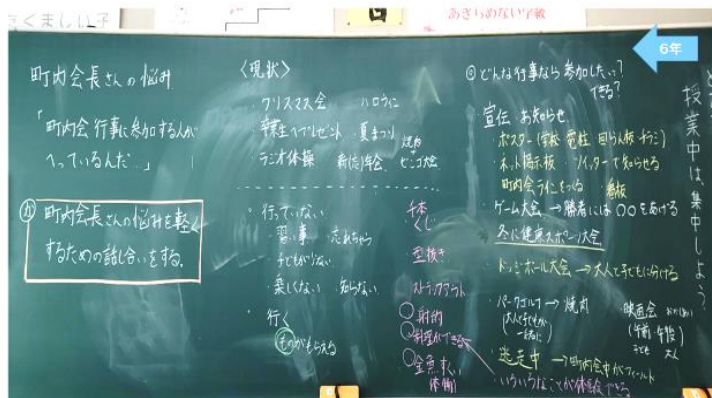 たくましい子
あきらめない学級
6年
町内会長さんの悩み
「町内会行事に参加する人が
へっているんだ…」
か
町内会長さんの悩みを軽く
するための話し合いをする。
〈現状〉
・クリスマス会 ハロウィン
卒業生へプレゼント 夏まつり
ラジオ体操 新(忘)年会 焼肉 ビンゴ大会
・行っていない
習い事 忘れちゃう
子どもが少ない
楽しくない 知らない
・行く
ものがもらえる
千本くじ
型抜き
ストラックアウト
射的
料理ができる
金魚すくい
(体側)
◎どんな行事なら参加したい?
できる?
宣伝 お知らせ
・ポスター(学校 電柱 回らん板 チラシ)
・ネット掲示板 ツイッターで知らせる
町内会ラインをつくる 看板
・ゲーム大会→勝者には〇〇をあげる
冬に健康スポーツ大会
・ドッジボール大会→大人と子どもに分ける
・パークゴルフ→焼肉
(大人と子どもが
一緒に)
映画会
(午前・午後)
子ども 大人
・逃走中→町内会中がフィールド
・いろいろなことが体験できる
授業中は、集中しよう。